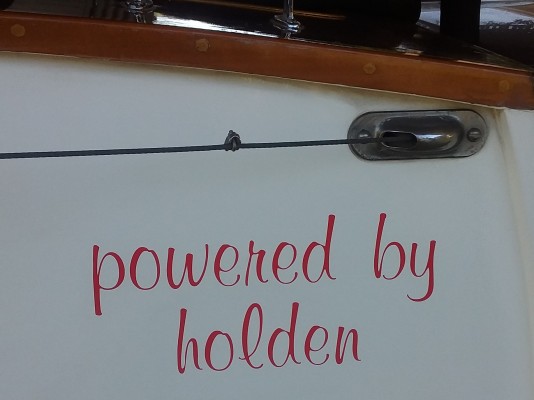 powered by
holden